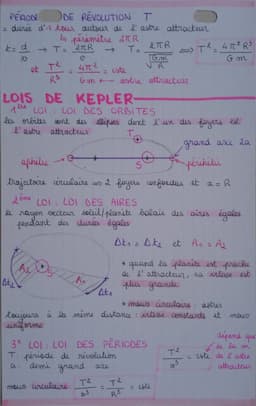 PÉRIODE DE RÉVOLUTION T
= durée d'1 tour autour de l'astre attracteur
↳ périmètre 2πR
v = d/v → T = 2πR/v → T = 2πR/√(Gm/R) ⇔ T² = 4π²R³/Gm
et T²/R³ = 4π²/Gm = cste ← astre attracteur
LOIS DE KEPLER
1ère LOI : LOI DES ORBITES
les orbites sont des ellipses dont l'un des foyers est
l'astre attracteur
T
grand axe 2a
aphélie
S
périhélie
trajectoire circulaire => 2 foyers confondus et a = R
2ème LOI : LOI DES AIRES
le rayon vecteur soleil/planète balaie des aires égales
pendant des durées égales
Δt1 = Δt2 et A1 = A2
A2
S
A1
Δt2
Δt1
* quand la planète est proche
de l'attracteur, sa vitesse est
plus grande
* mouv circulaire : astres
toujours à la même distance : vitesse constante et mouv
uniforme
3e LOI : LOI DES PÉRIODES
T : période de révolution
a : demi grand axe
T²/a³ = cste
dépend que
de la m
de l'astre
attracteur
mouv circulaire : T²/a³ = T²/R³ = cste